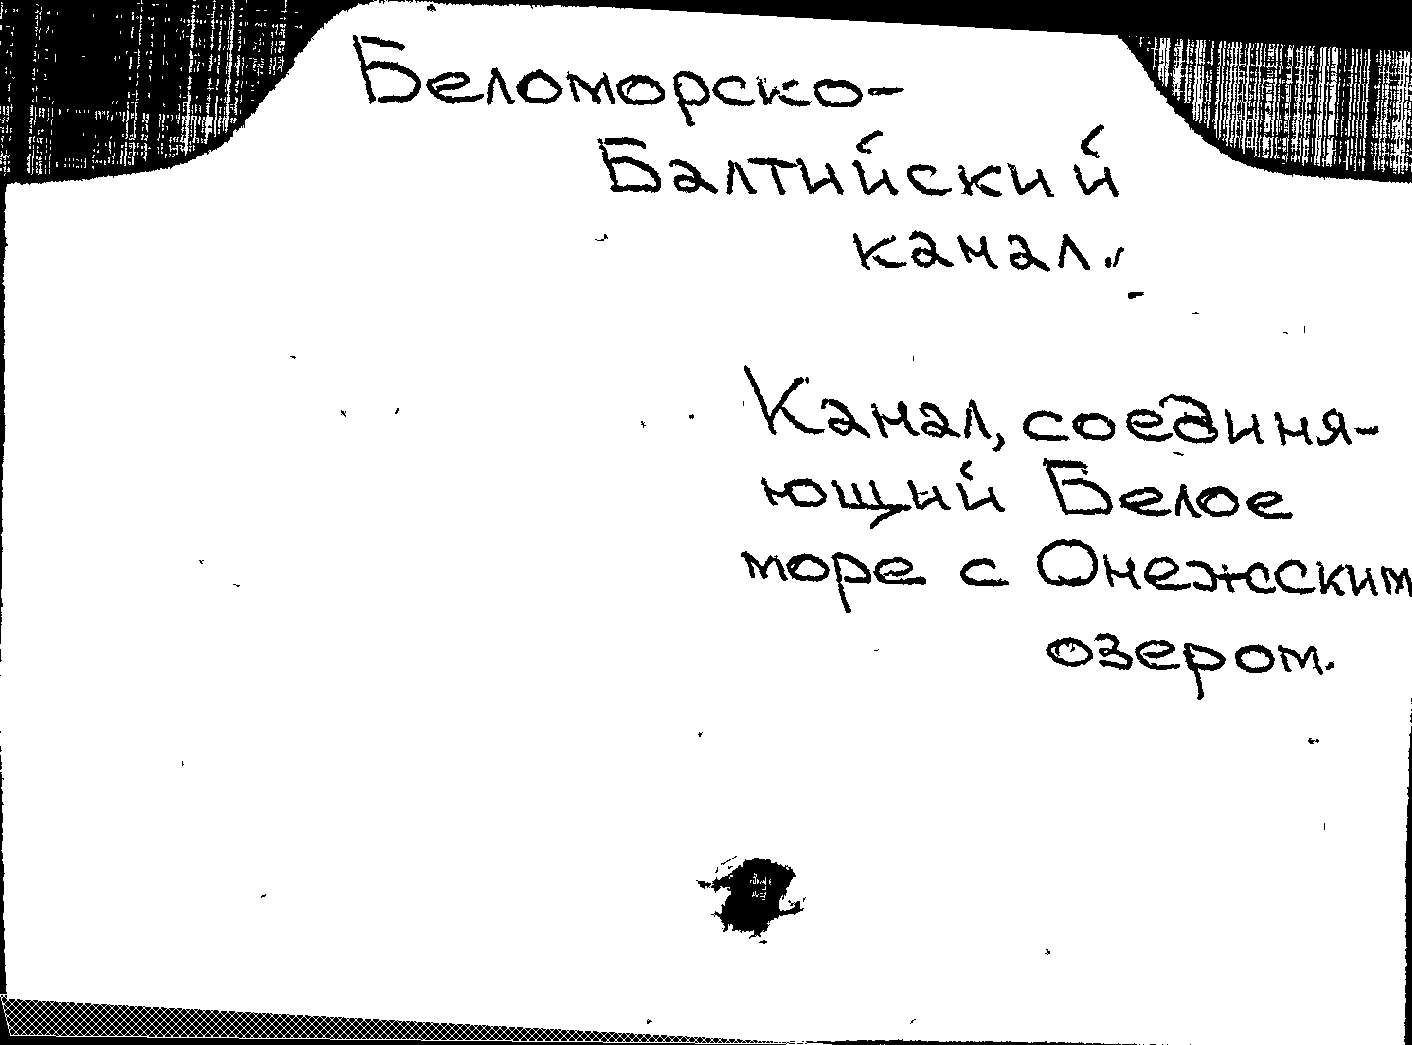 Беломорско-
Балтийский
канал.
Канал, соединя-
ющий Белое
море с Онежским
озером.